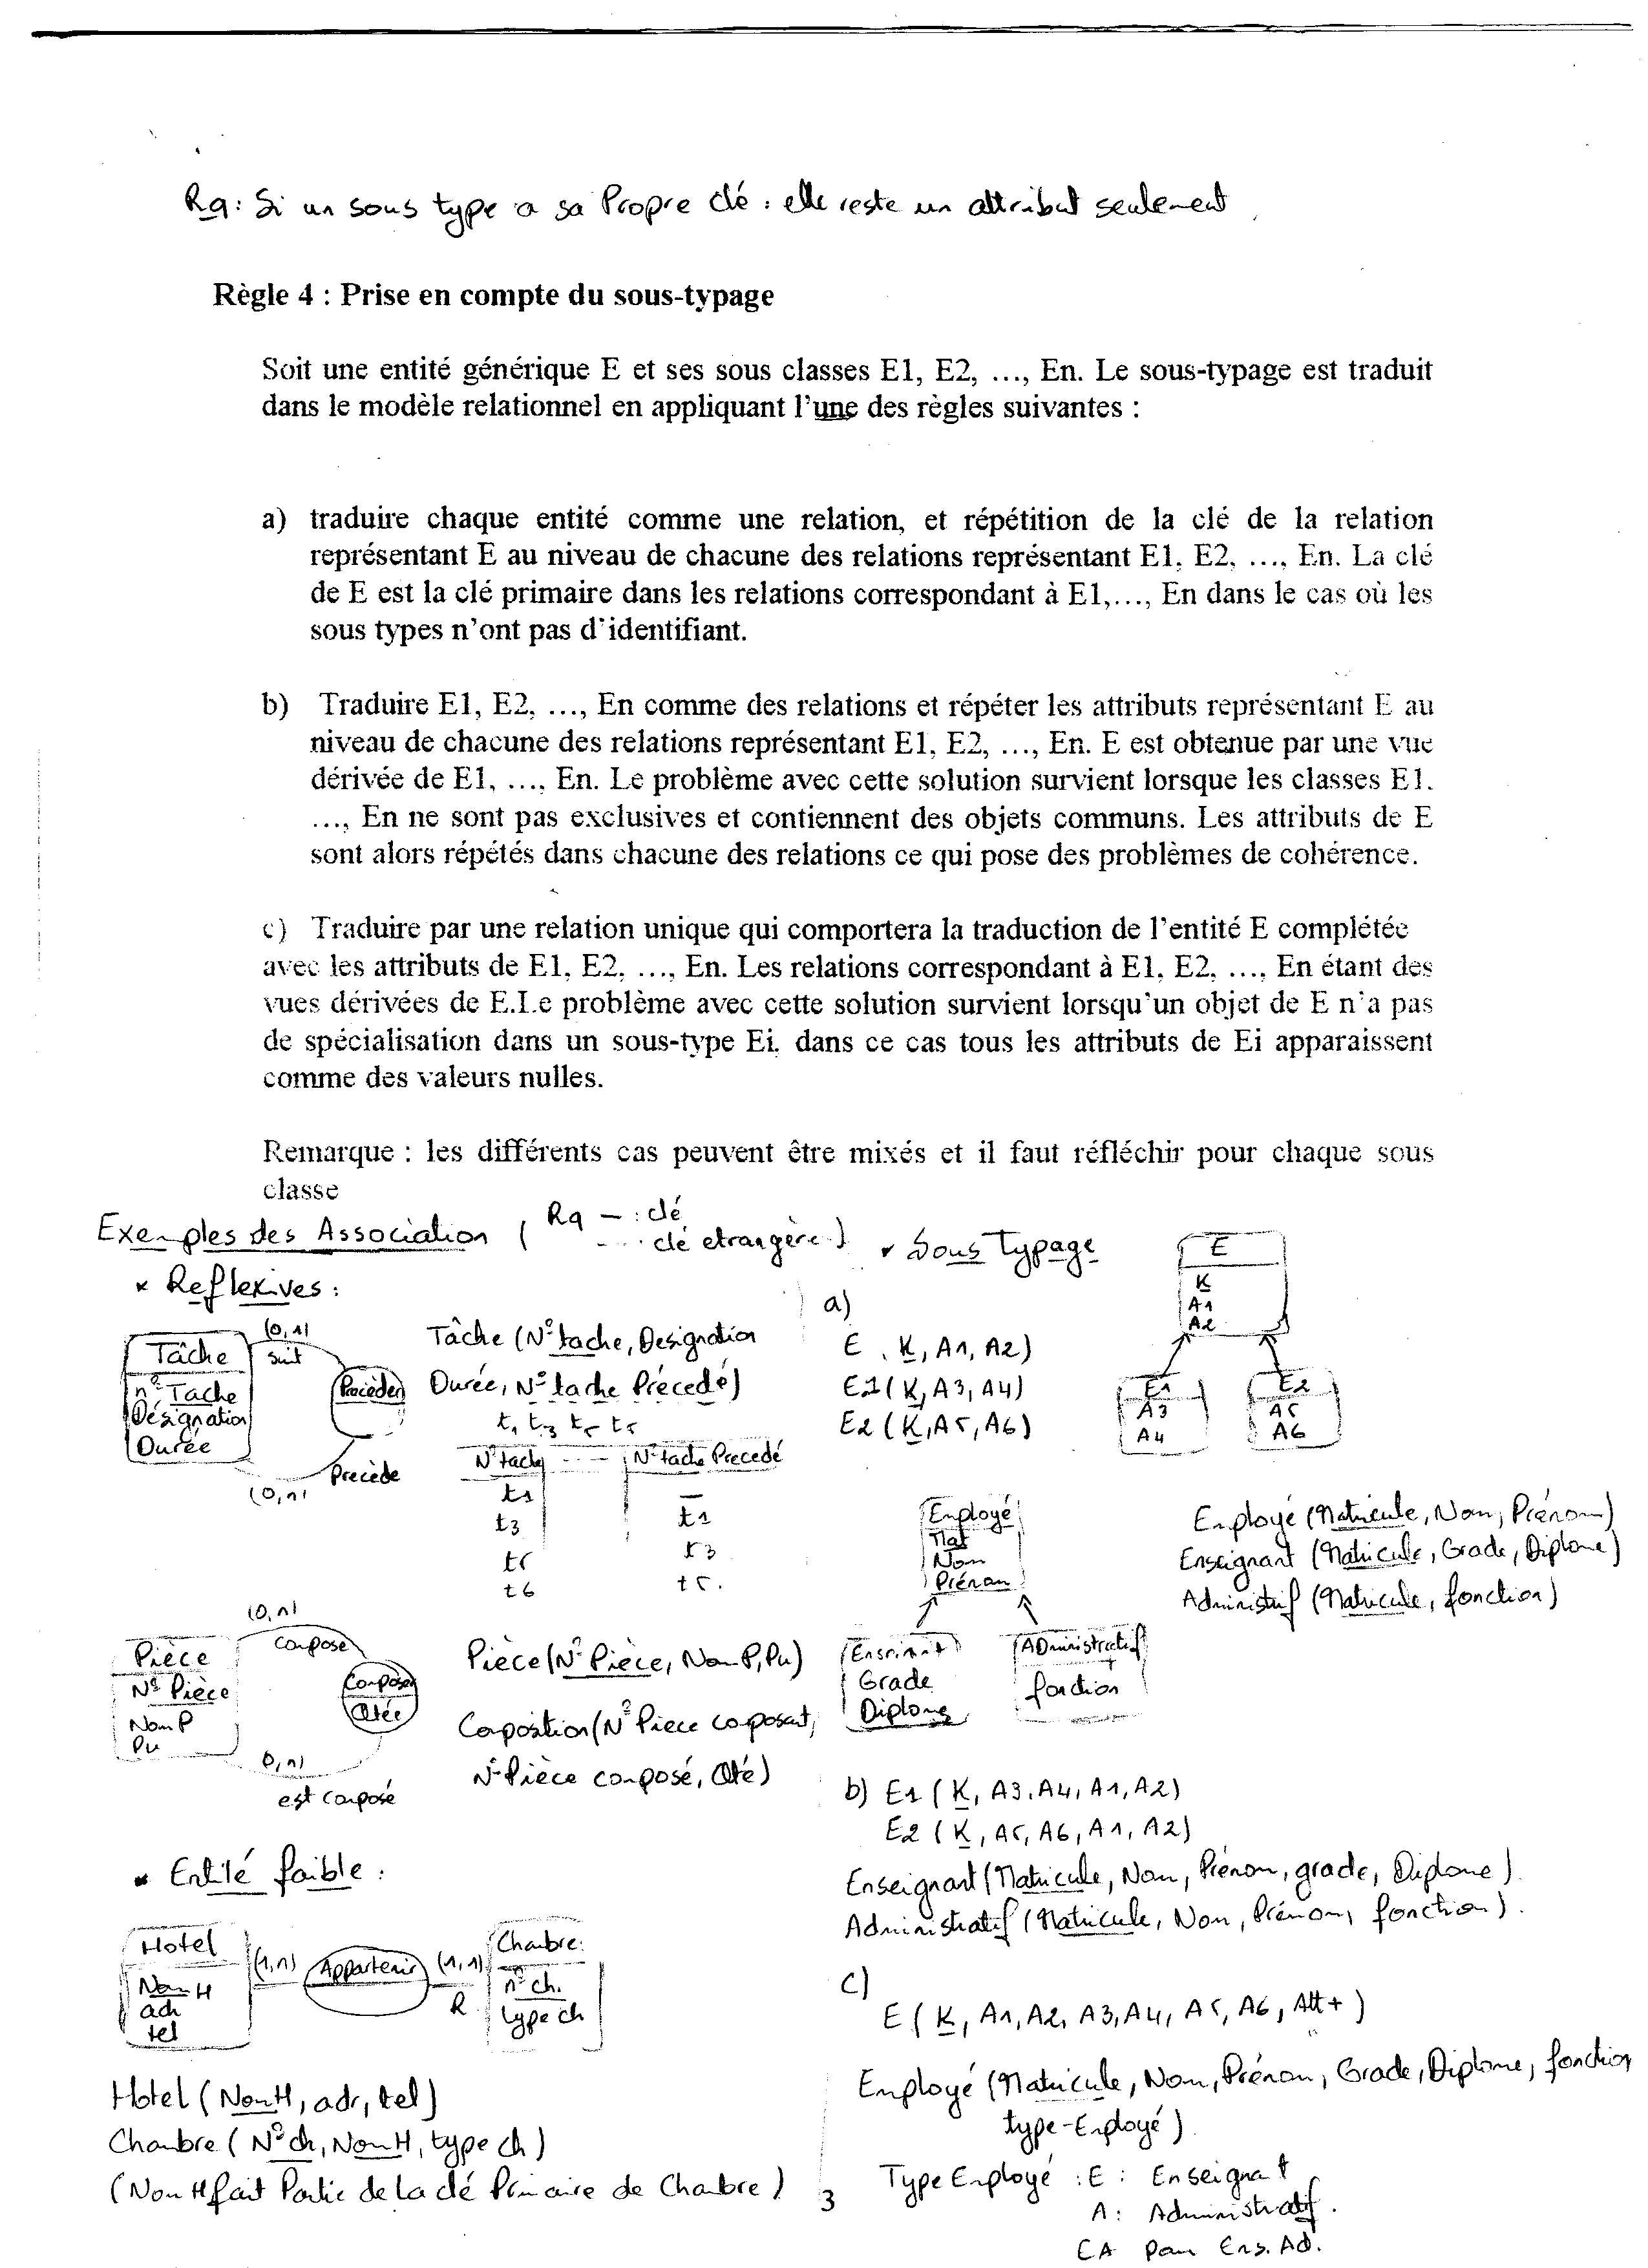 Rq: Si un sous type a sa Propre Clé : elle reste un attribut seulement
Règle 4 : Prise en compte du sous-typage
Soit une entité générique E et ses sous classes E1, E2, …, En. Le sous-typage est traduit
dans le modèle relationnel en appliquant l'une des règles suivantes :
a) traduire chaque entité comme une relation, et répétition de la clé de la relation
représentant E au niveau de chacune des relations représentant E1, E2, …, En. La clé
de E est la clé primaire dans les relations correspondant à E1,…, En dans le cas où les
sous types n'ont pas d'identifiant.
b) Traduire E1, E2, …, En comme des relations et répéter les attributs représentant E au
niveau de chacune des relations représentant E1, E2, …, En. E est obtenue par une vue
dérivée de E1, …, En. Le problème avec cette solution survient lorsque les classes E1.
…, En ne sont pas exclusives et contiennent des objets communs. Les attributs de E
sont alors répétés dans chacune des relations ce qui pose des problèmes de cohérence.
c) Traduire par une relation unique qui comportera la traduction de l'entité E complétée
avec les attributs de E1, E2, …, En. Les relations correspondant à E1, E2, …, En étant des
vues dérivées de E.Le problème avec cette solution survient lorsqu'un objet de E n'a pas
de spécialisation dans un sous-type Ei, dans ce cas tous les attributs de Ei apparaissent
comme des valeurs nulles.
Remarque : les différents cas peuvent être mixés et il faut réfléchir pour chaque sous
classe
Exemples des Association ( Rq — : clé
--- : clé etrangère )
* Reflexives :
Tâche
n° Tache
Désignation
Durée
(0,1)
suit
Precéder
Precède
(0,n)
Tâche (N° tache, Designation
Durée, N° tache Précedé)
t1 t3 t5 t5
N°tache --- N°tache Precedé
t1 —
t3 t1
t5 t3
t6 t5.
Pièce
N° Pièce
NomP
Pu
(0,n)
compose
Composer
Qtée
0,n)
est composé
Pièce (N° Pièce, NomP, Pu)
Composition (N° Piece composant,
N° Pièce composé, Qté)
* Entité faible :
Hotel
NomH
adr
tel
(1,n)
Appartenir
(1,1)
R
Chambre:
n° ch.
type ch
Hotel (NomH, adr, tel)
Chambre ( N° ch, NomH, type ch)
(NomH fait Partie de la clé Primaire de Chambre)
3
* Sous Typage
a)
E . K, A1, A2)
E1 (K, A3, A4)
E2 (K, A5, A6)
E
K
A1
A2
E1
A3
A4
E2
A5
A6
Employé
Mat
Nom
Prénom
Enseignant
Grade
Diplome
ADministratif
fonction
Employé (Matricule, Nom, Prénom)
Enseignant (Matricule, Grade, Diplome)
Administratif (Matricule, fonction)
b) E1 ( K, A3, A4, A1, A2)
E2 ( K, A5, A6, A1, A2)
Enseignant (Matricule, Nom, Prénom, grade, Diplome).
Administratif (Matricule, Nom, Prénom, fonction).
c)
E ( K, A1, A2, A3, A4, A5, A6, Att+ )
Employé (Matricule, Nom, Prénom, Grade, Diplome, fonction
type-Employé)
Type Employé : E : Enseignant
A : Administratif.
EA pour Ens. Ad.